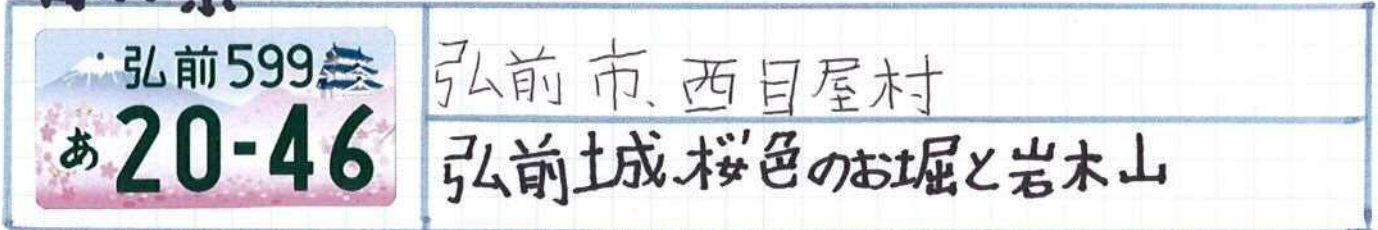 弘前599
あ20-46
弘前市、西目屋村
弘前城、桜色のお堀と岩木山